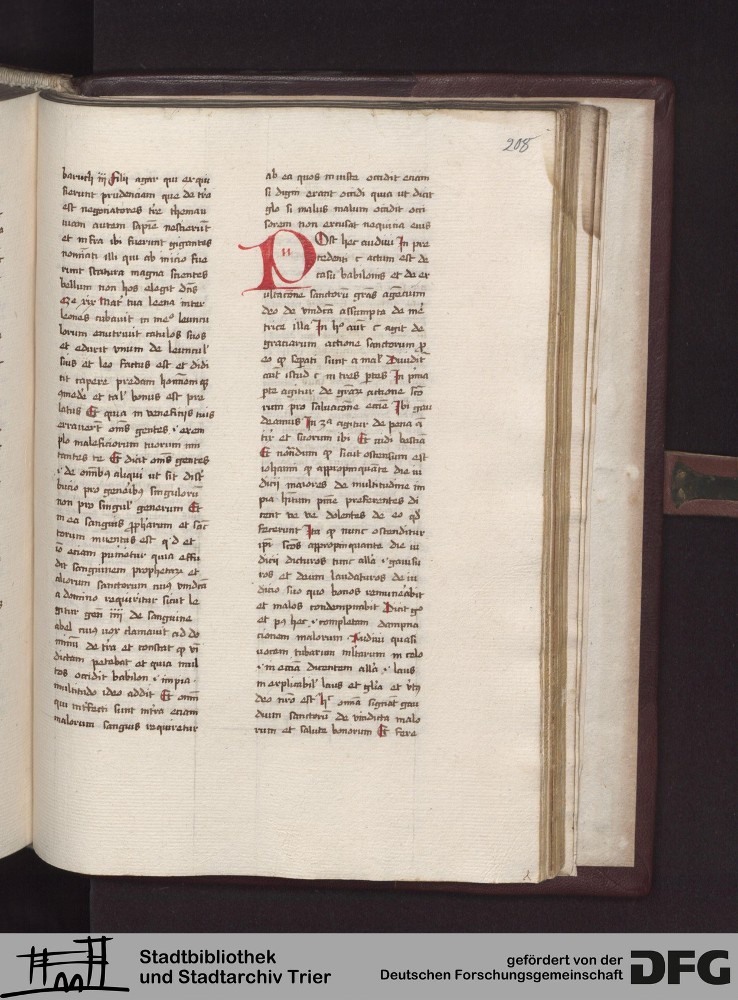 208
baruch iij Filij agar qui exqui
sierunt prudenciam que de tra
est negociatores tre theman
viam autem sapie nescierunt
et infra ibi fuerunt gigantes
nominati illi qui ab inicio fue
runt statura magna scientes
bellum non hos elegit dns
Eze xix Mater tua leena inter
leones cubauit in medio leuncu
lorum enutriuit catulos suos
et eduxit vnum de leuncul'
suis et leo factus est et didi
cit capere predam hominemqz
comede et tal' bonus est pre
latus Et quia in veneficijs tuis
errauert oms gentes i exem
plo maleficiorum tuorum imi
tantes te Et dicit oms gentes
i de omibz aliqui ut sit dist'
bucio pro generibz singulorum
non pro singul' generum Et
in ea sanguis pphetarum et sanc
torum inuentus est
io etiam punietur quia effu
dit sanguinem prophetarum et
aliorum sanctorum cuius vindcta
a domino requiritur sicut le
gitur gen iiij de sanguine
abel cuius vox clamauit ad do
minum de tra et constat q vi
dictam petebat et quia mul
tos occidit babilon i impia
multitudo ideo addit Et omnium
qui interfecti sunt in terra etiam
malorum sanguis requiretur
ab ea quos iniuste occidit etiam
si digni erant occidi quia ut dicit
glo si malus malum occidit occi
sorem non excusat nequicia eius
Post hec audiui In pre
cedenti c actum est de
casu babilonis et de ex
ultacione sanctorum gras agencium
deo de vindcta assumpta de me
trice illa In hoc aut c agit de
graciarum actione sanctorum p
eo q separati sunt a mal' Diuidit
aut istud c in tres ptes In prima
pte agitur de graru actione sco
rum pro saluacione ecclie Ibi gau
deamus In 3a agitur de pena an
ti et suorum ibi Et vidi bestia
Et notandum q sicut ostensum est
iohanni q appropinquante die iu
dicij maiores de multitudine im
pia hitum pnie preferentes di
cent ve ve dolentes de eo qd
fecerunt Ita q nunc ostenditur
ipi scos appropinquante die iu
dicij dicturos tunc alla i gauisu
ros et deum laudaturos de iu
dicio suo quo bonos remunerabit
et malos condempnabit Dicit go
et post hec i completam dampna
cionem malorum Audiui quasi
vocem tubarum mltarum in celo
i in ecclia dicentem alla i laus
inexplicabil' laus et glia et vtus
deo nro est hec omia signat gau
dium sanctorum de vindicta malo
rum et salute bonorum Et fere
Stadtbibliothek
und Stadtarchiv Trier
gefördert von der
Deutschen Forschungsgemeinschaft
DFG